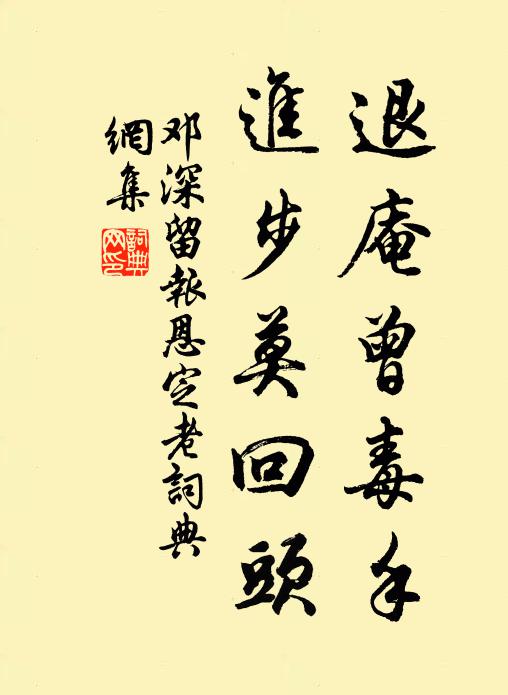 退庵曾毒手
進步莫回頭
邓深留報恩定老詞典
網集
詞典网印